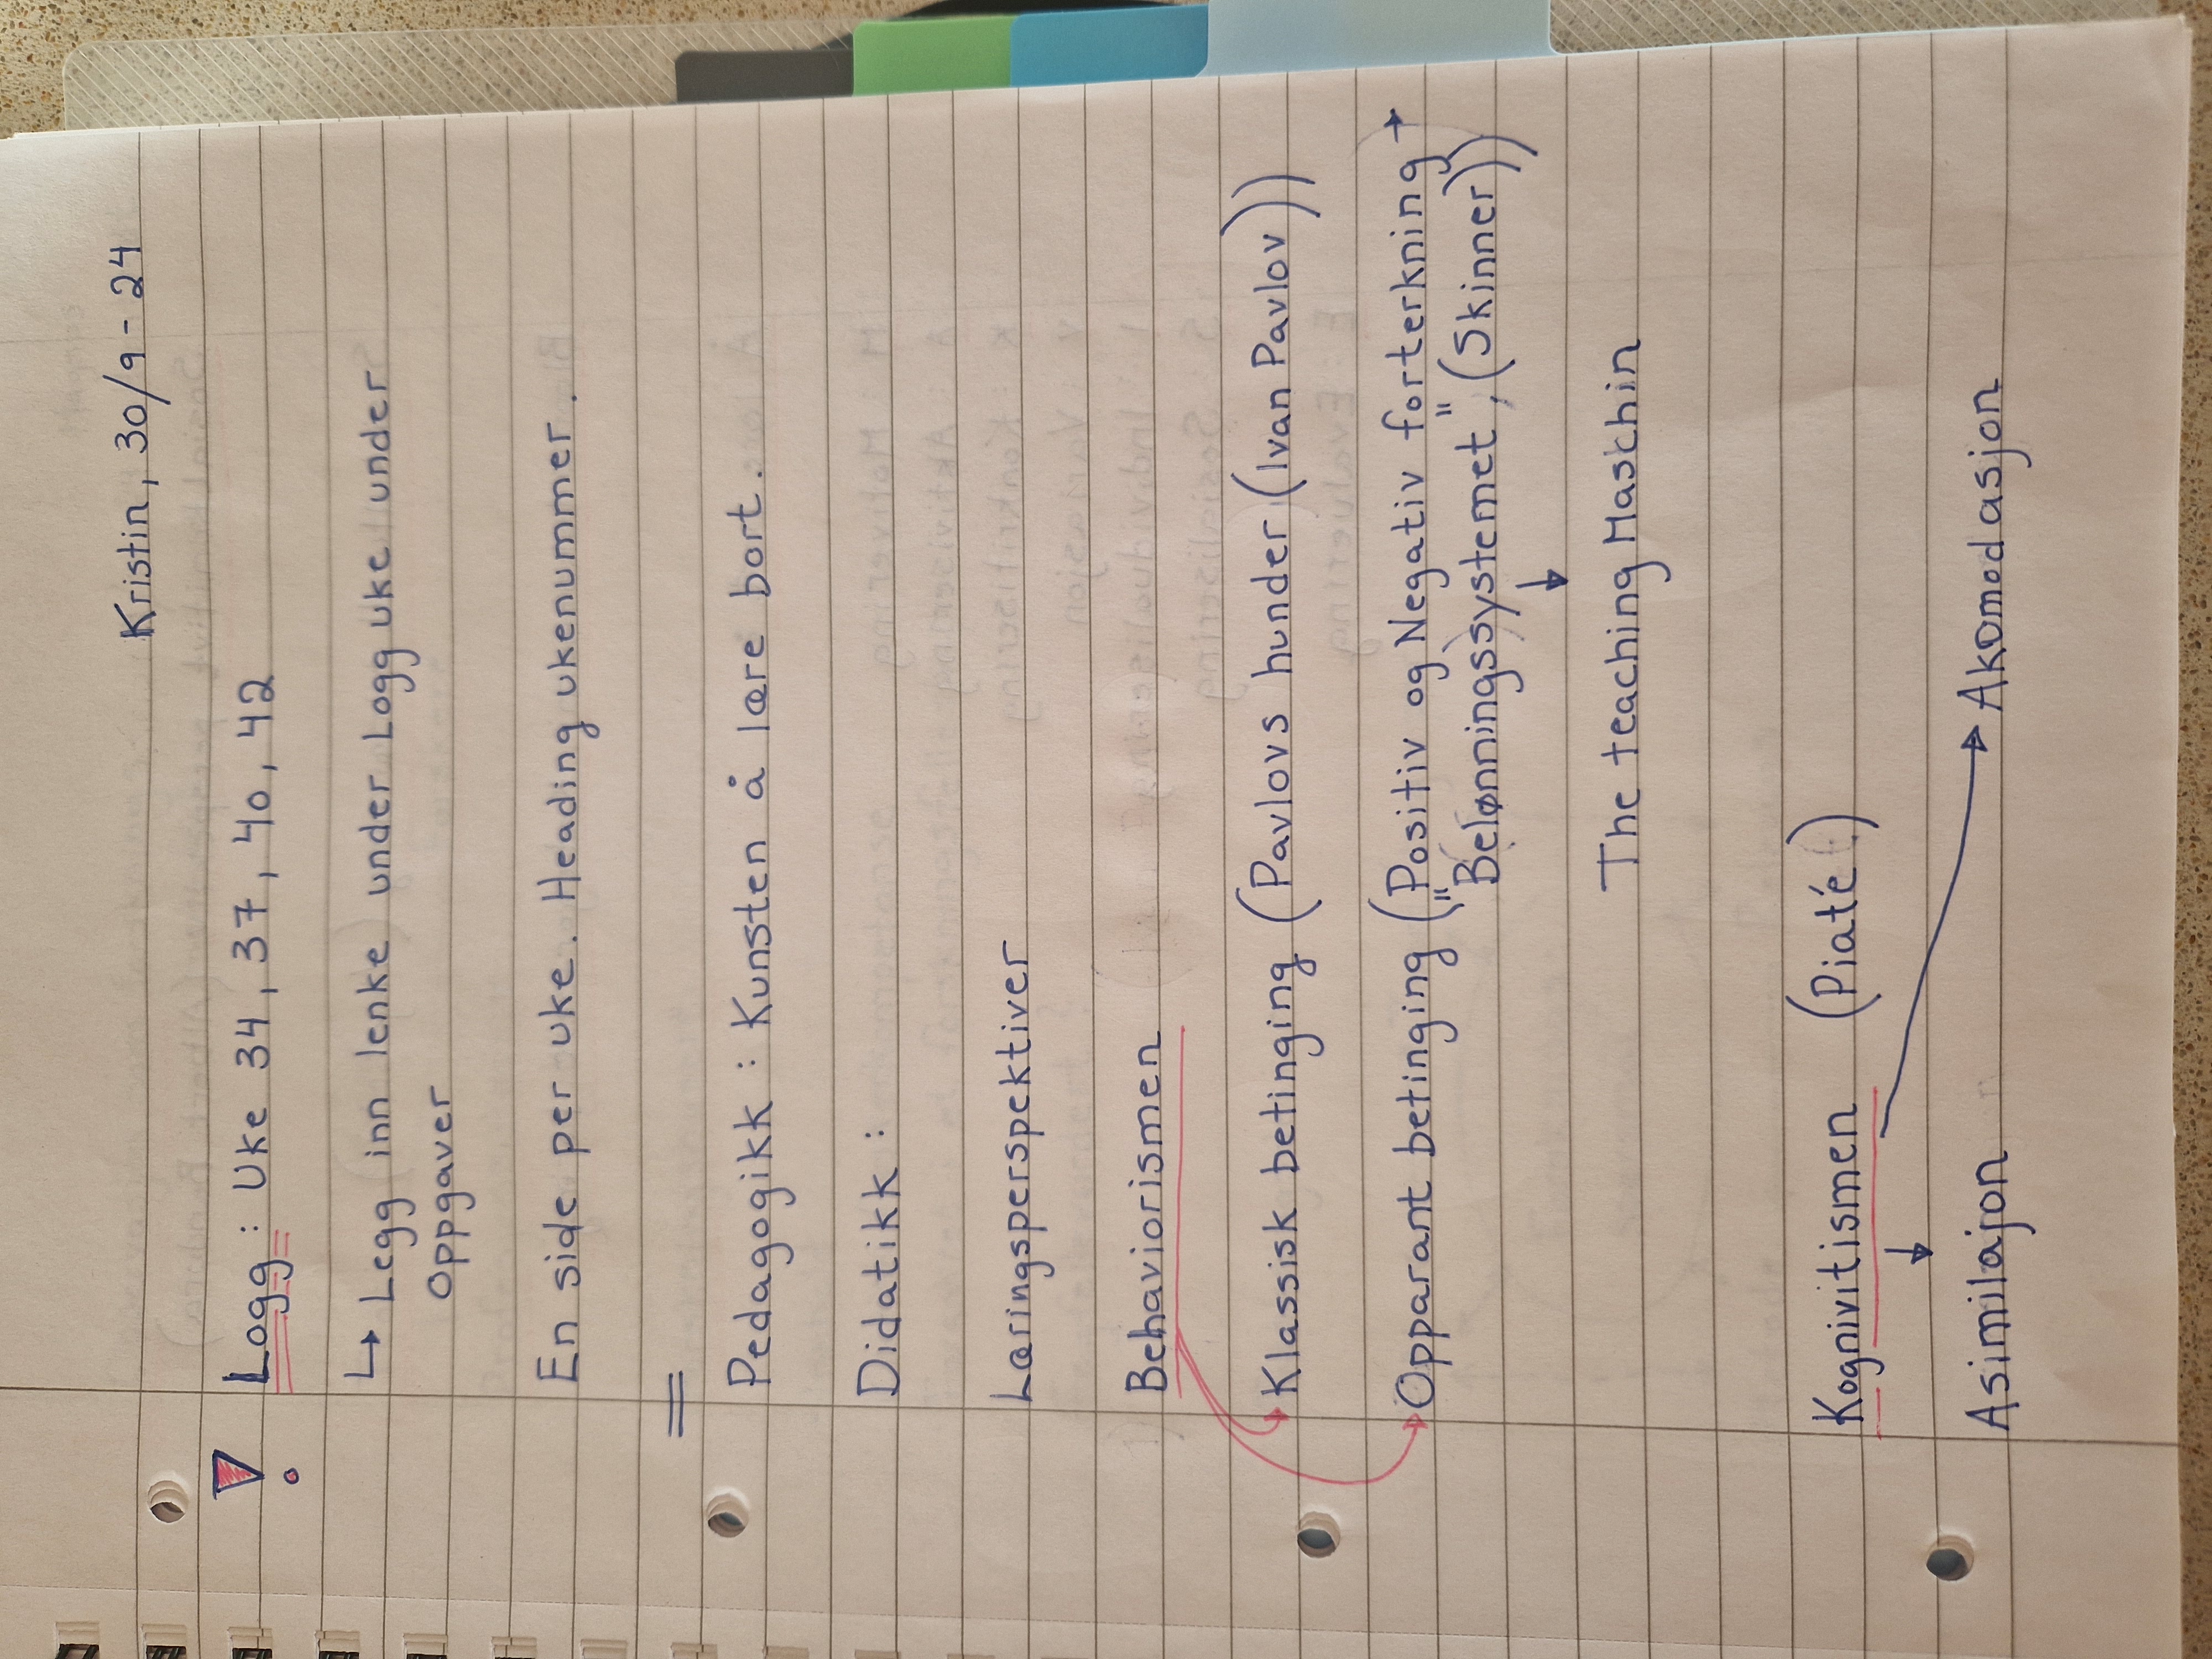 Kristin, 30/9-24
! Logg : Uke 34, 37, 40, 42
↳ Legg inn lenke under Logg uke under
Oppgaver
En side per uke. Heading ukenummer.
=
Pedagogikk : Kunsten å lære bort.
Didatikk :
Læringsperspektiver
Behaviorismen
Klassisk betinging (Pavlovs hunder (Ivan Pavlov))
Opparant betinging (Positiv og Negativ forterkning →
"Belønningssystemet", (Skinner))
↓
The teaching Maschin
Kognivitismen (Piaté)
↓
Asimilajon → Akomodasjon